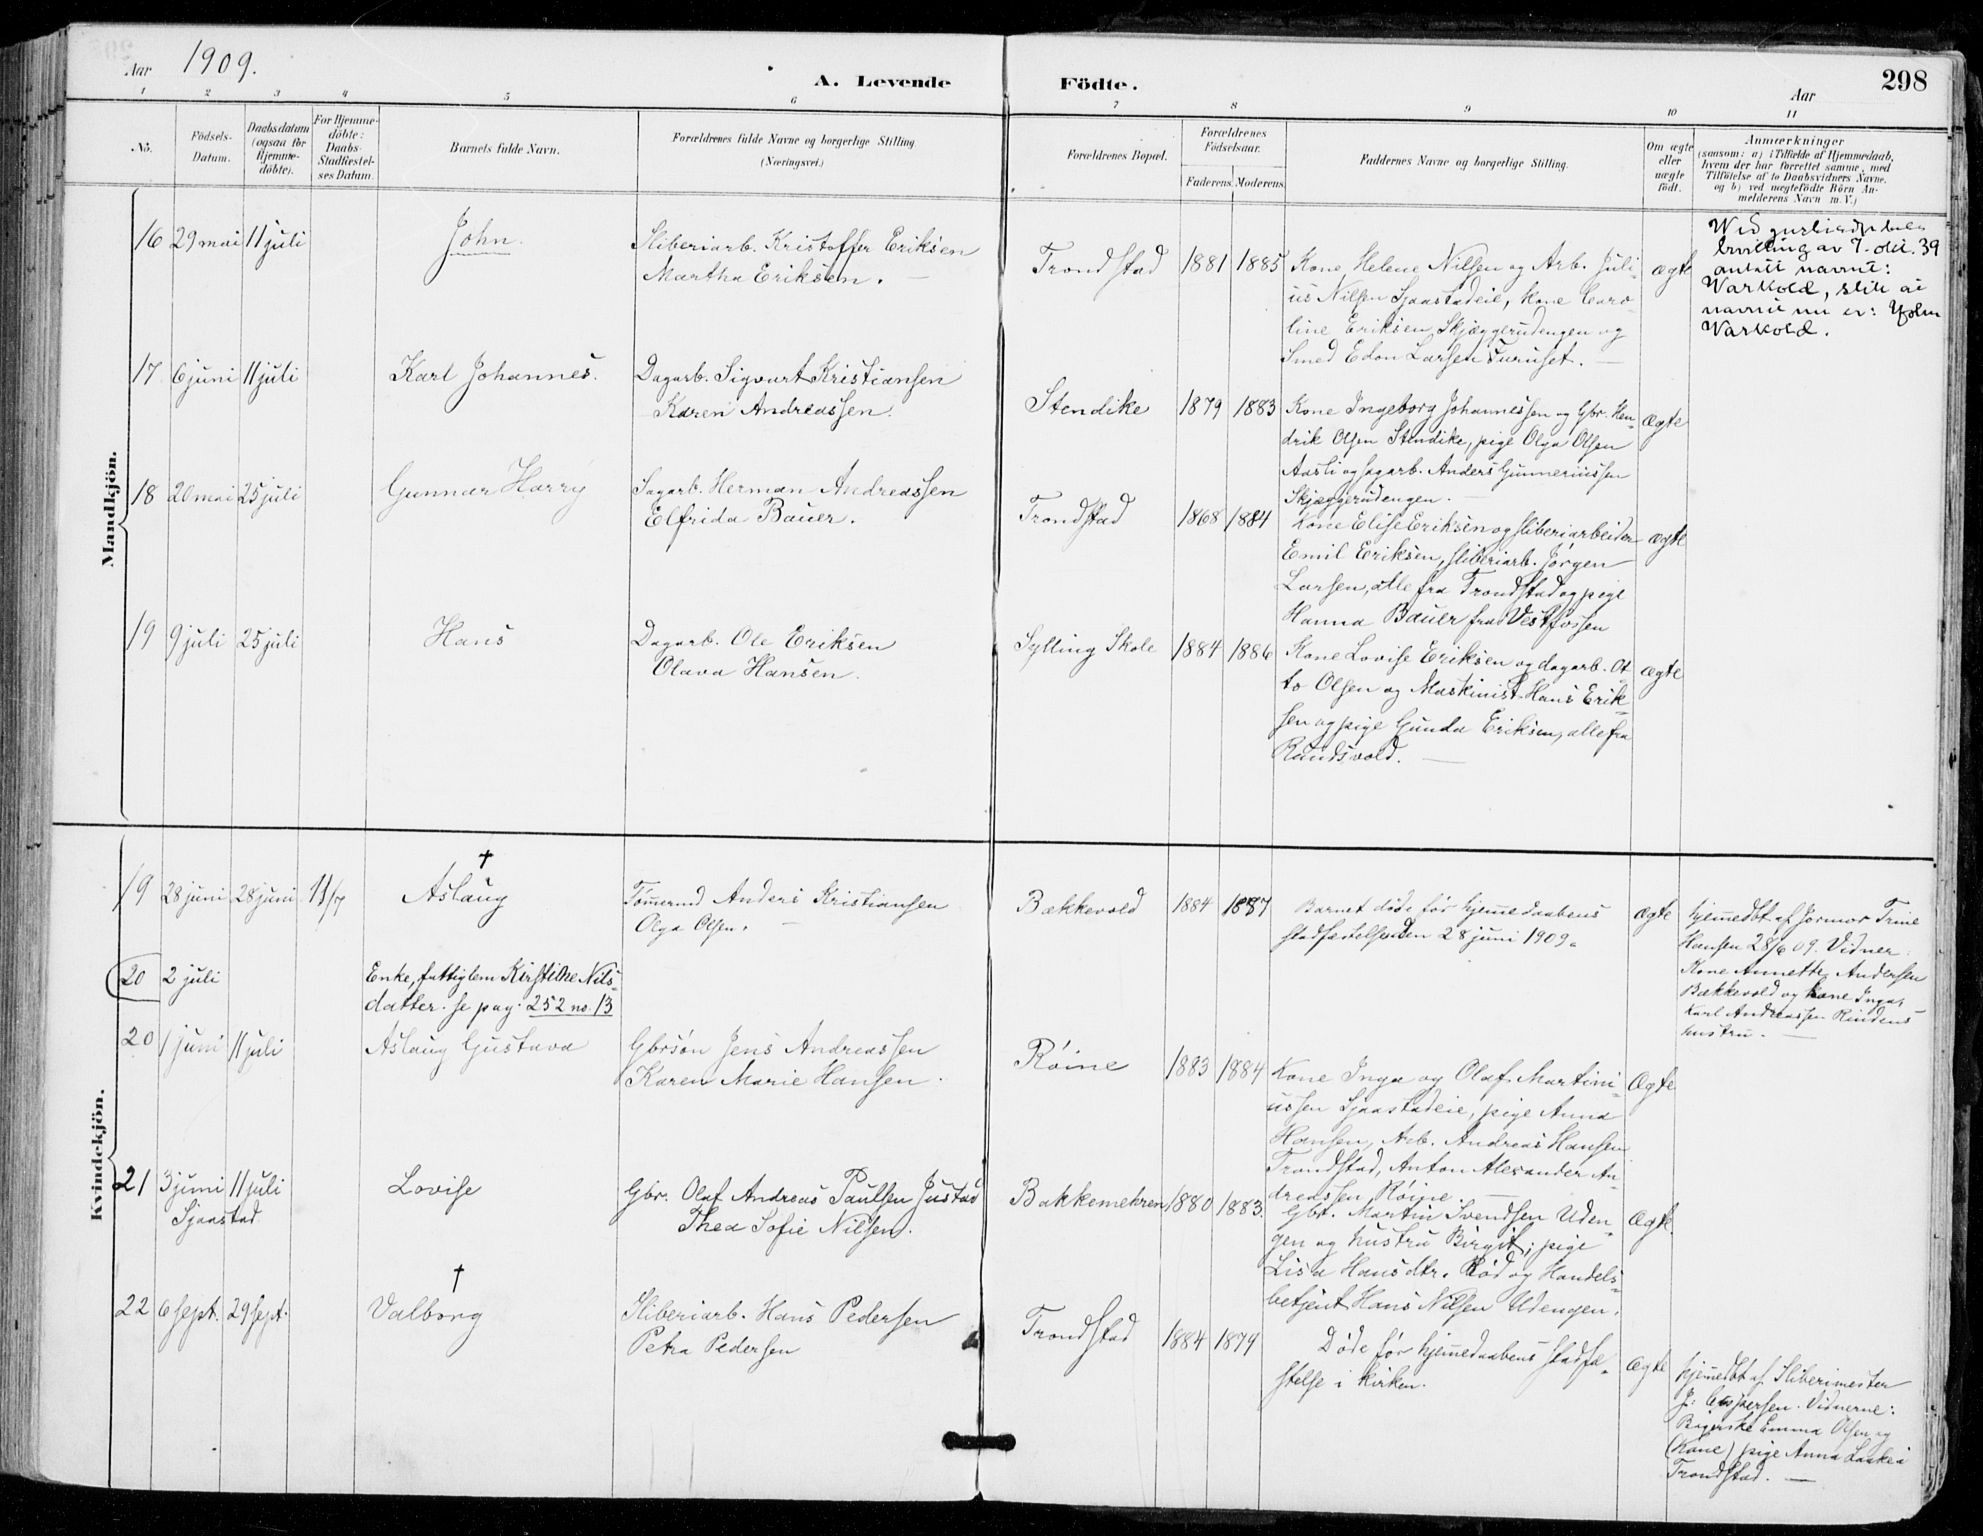 Aar 1909.
A. Levende Födte.
Aar
298
1 2 3 4 5 6 7 8 9 10 11
No.
Födsels-Datum.
Daabsdatum (ogsaa for Hjemme-döbte).
For Hjemme-döbte: Daabs-Stadfæstel-ses Datum.
Barnets fulde Navn.
Forældrenes fulde Navne og borgerlige Stilling (Næringsvei.)
Forældrenes Bopæl.
Forældrenes Födselsaar.
Faderens Moderens
Faddernes Navne og borgerlige Stilling.
Om ægte eller uægte födt.
Anmærkninger
(saasom: a) i Tilfælde af Hjemmedaab,
hvem der har forrettet samme, med
Tilföielse af to Daabsvidners Navne.
og b) ved uægtefödte Börn An-
melderens Navn m. V.)
Mandkjön.
16 29 mai 11 juli
John.
Sliberiarb. Kristoffer Eriksen
Martha Eriksen.
Trondstad 1881 1885
Kone Helene Nilsen og Arb. Juli-
us Nilsen Sjaastadeie, kone Caro-
line Eriksen, Skjæggerudengen og
Smed Edon Larsen Furuset.
ægte
av 7. okt. 39
antatt navnet:
Warkold, slik at
navnet nu er: John
Warkold.
17 6 juni 11 juli
Karl Johannes.
Dagarb. Sigvart Kristiansen
Karen Andreassen.
Stendike 1879 1883
Kone Ingeborg Johannessen og Gbr. Hen-
drik Olsen Stendike, pige Olga Olsen
Aasli og sagarb. Anders Gunneriussen
Skjæggerudengen.
ægte
18 20 mai 25 juli
Gunnar Harry
Sagarb. Herman Andreassen
Elfrida Bauer.
Trondstad 1868 1884
Kone Elise Eriksen og sliberiarbeider
Emil Eriksen, sliberiarb. Jørgen
Larsen, alle fra Trondstad og pige
Hanna Bauer fra Vestfossen
ægte
19 9 juli 25 juli
Hans
Dagarb. Ole Eriksen
Olava Hansen.
Sylling Skole 1884 1886
Kone Lovise Eriksen og dagarb. Ot
to Olsen og Maskinist Hans Erik-
sen og pige Gunda Eriksen, alle fra
Rundsvold.
ægte
Kvindekjön.
19 28 juni 28 juni 11/7
†
Aslaug
Tømmermd Anders Kristiansen
Olga Olsen.
Bækkevold 1884 1887
Barnet døde før hjemmedaabens
stadfæstelse den 28 juni 1909.
ægte
hjemmedbt af Jormor Trine
Hansen 28/6 09. Vidner:
Kone Annette Andersen
Bækkevold og kone Inga,
Karl Andreassen Rindens
hustru.
20 2 juli
Enke, fattiglem Kirstine Nils-
datter. se pag. 252 no. 13
20 1 juni 11 juli
Aslaug Gustava
Gbrsøn Jens Andreassen
Karen Marie Hansen.
Røine 1883 1884
Kone Inga og Olaf Martini-
ussen Sjaastadeie, pige Anna
Hansen, Arb. Andreas Hansen
Trondstad, Anton Alexander An-
dreassen Røine.
Ægte
21 3 juni 11 juli
Sjaastad.
Lovise
Gbr. Olaf Andreas Paulsen Justad
Thea Sofie Nilsen.
Bakkemehren 1880 1883.
Gbr. Martin Svendsen Uden-
gen og hustru Birgit; pige
Lisa Hansdtr. Rød og Handels-
betjent Hans Nilsen Udengen.
Ægte.
22 6 sept. 29 sept.
†
Valborg
Sliberiarb. Hans Pedersen
Petra Pedersen
Trondstad 1884 1879
Døde før hjemmedaabens stadfæ-
stelse i kirken.
Ægte
hjemmedbt af Sliberimester
J. Caspersen. Vidnerne:
Emma Olsen og
(Kone) pige Anna i
Trondstad.